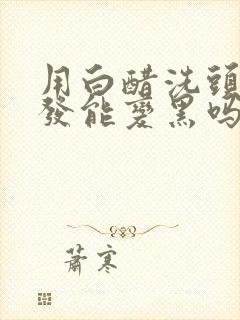 用白醋洗頭
發能變黑吗
蕭寒